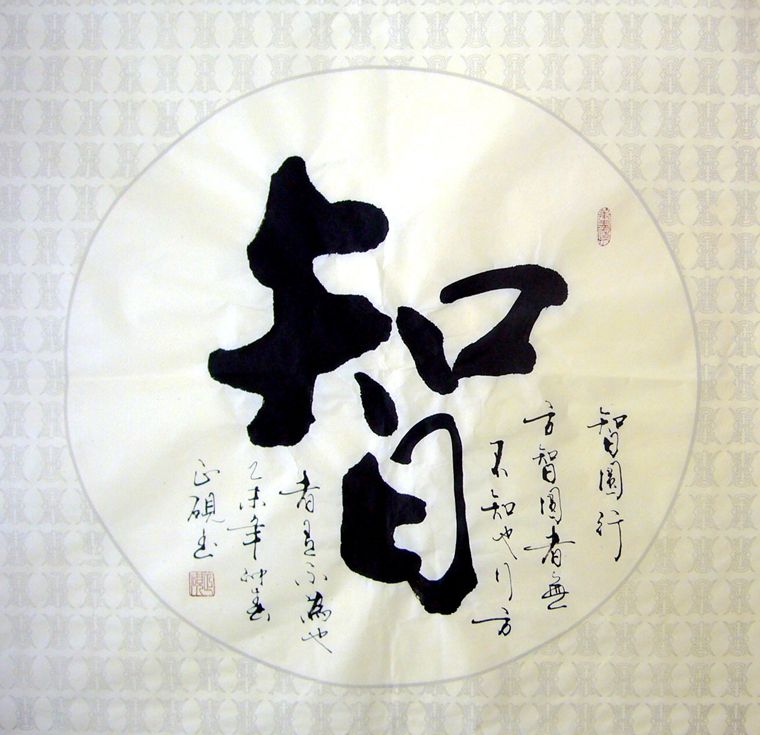 智
智圓行
方智圓者無
不知也行方
者有不為也
乙未年仲春
正硯书